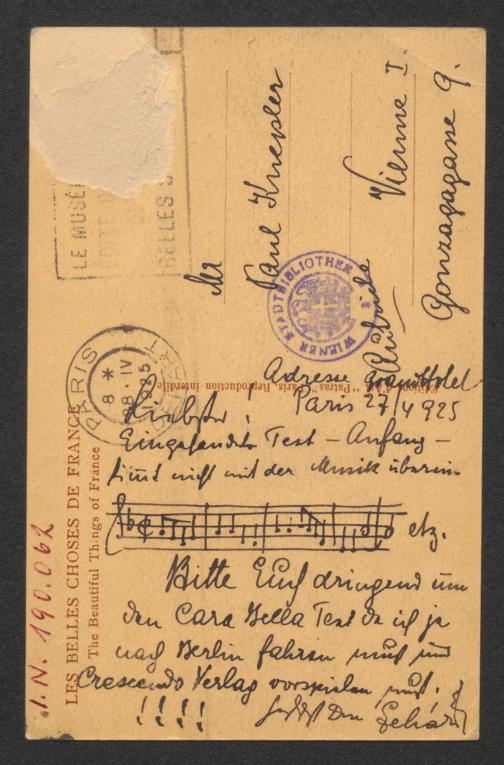 LE MUSÉE
BELLES
PARIS
8 *
28 · IV
1925
DEPART
Mr
Paul Knepler
Vienne I.
Gonzagagasse 9.
Autriche
WIENER STADTBIBLIOTHEK
"Patras" Paris, Reproduction interdite
Adresse Grand Hotel
Paris 27/4 925
Liebster!
Eingesandter Text – Anfang –
stimmt nicht mit der Musik überein
etz.
Bitte Euch dringend um
den Cara Bella Text da ich ja
nach Berlin fahren muß und
Crescendo Verlag vorspielen muß.
!!!! Dein Lehár
LES BELLES CHOSES DE FRANCE
The Beautiful Things of France
I.N. 190.062